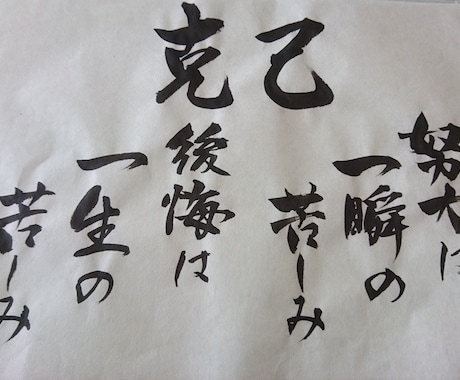 克己
努力は
一瞬の
苦しみ
後悔は
一生の
苦しみ